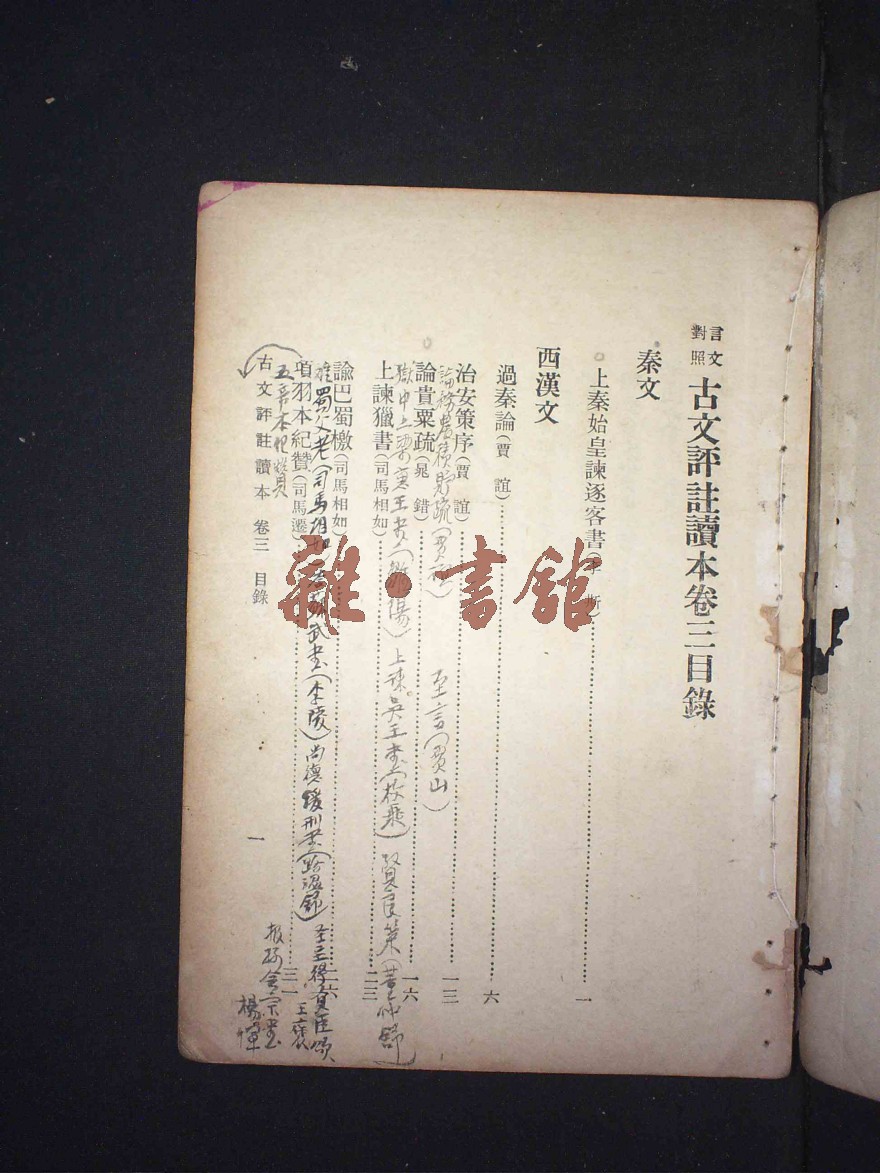 言文對照 古文評註讀本卷三目錄
秦文
上秦始皇諫逐客書(李斯) 一
西漢文
過秦論(賈誼) 六
治安策序(賈誼) 一三
論積貯疏(賈誼) 至言(賈山)
論貴粟疏(晁錯) 一六
獄中上梁孝王書(鄒陽) 上諫吳王書(枚乘) 賢良策(董仲舒)
上諫獵書(司馬相如) 二三
諭巴蜀檄(司馬相如)
難蜀父老(司馬相如) 答蘇武書(李陵) 尚德緩刑書(路溫舒) 聖主得賢臣頌 王褒
項羽本紀贊(司馬遷) 三一
五帝本紀贊
報孫會宗書 楊惲
古文評註讀本 卷三 目錄 一
雜·書館